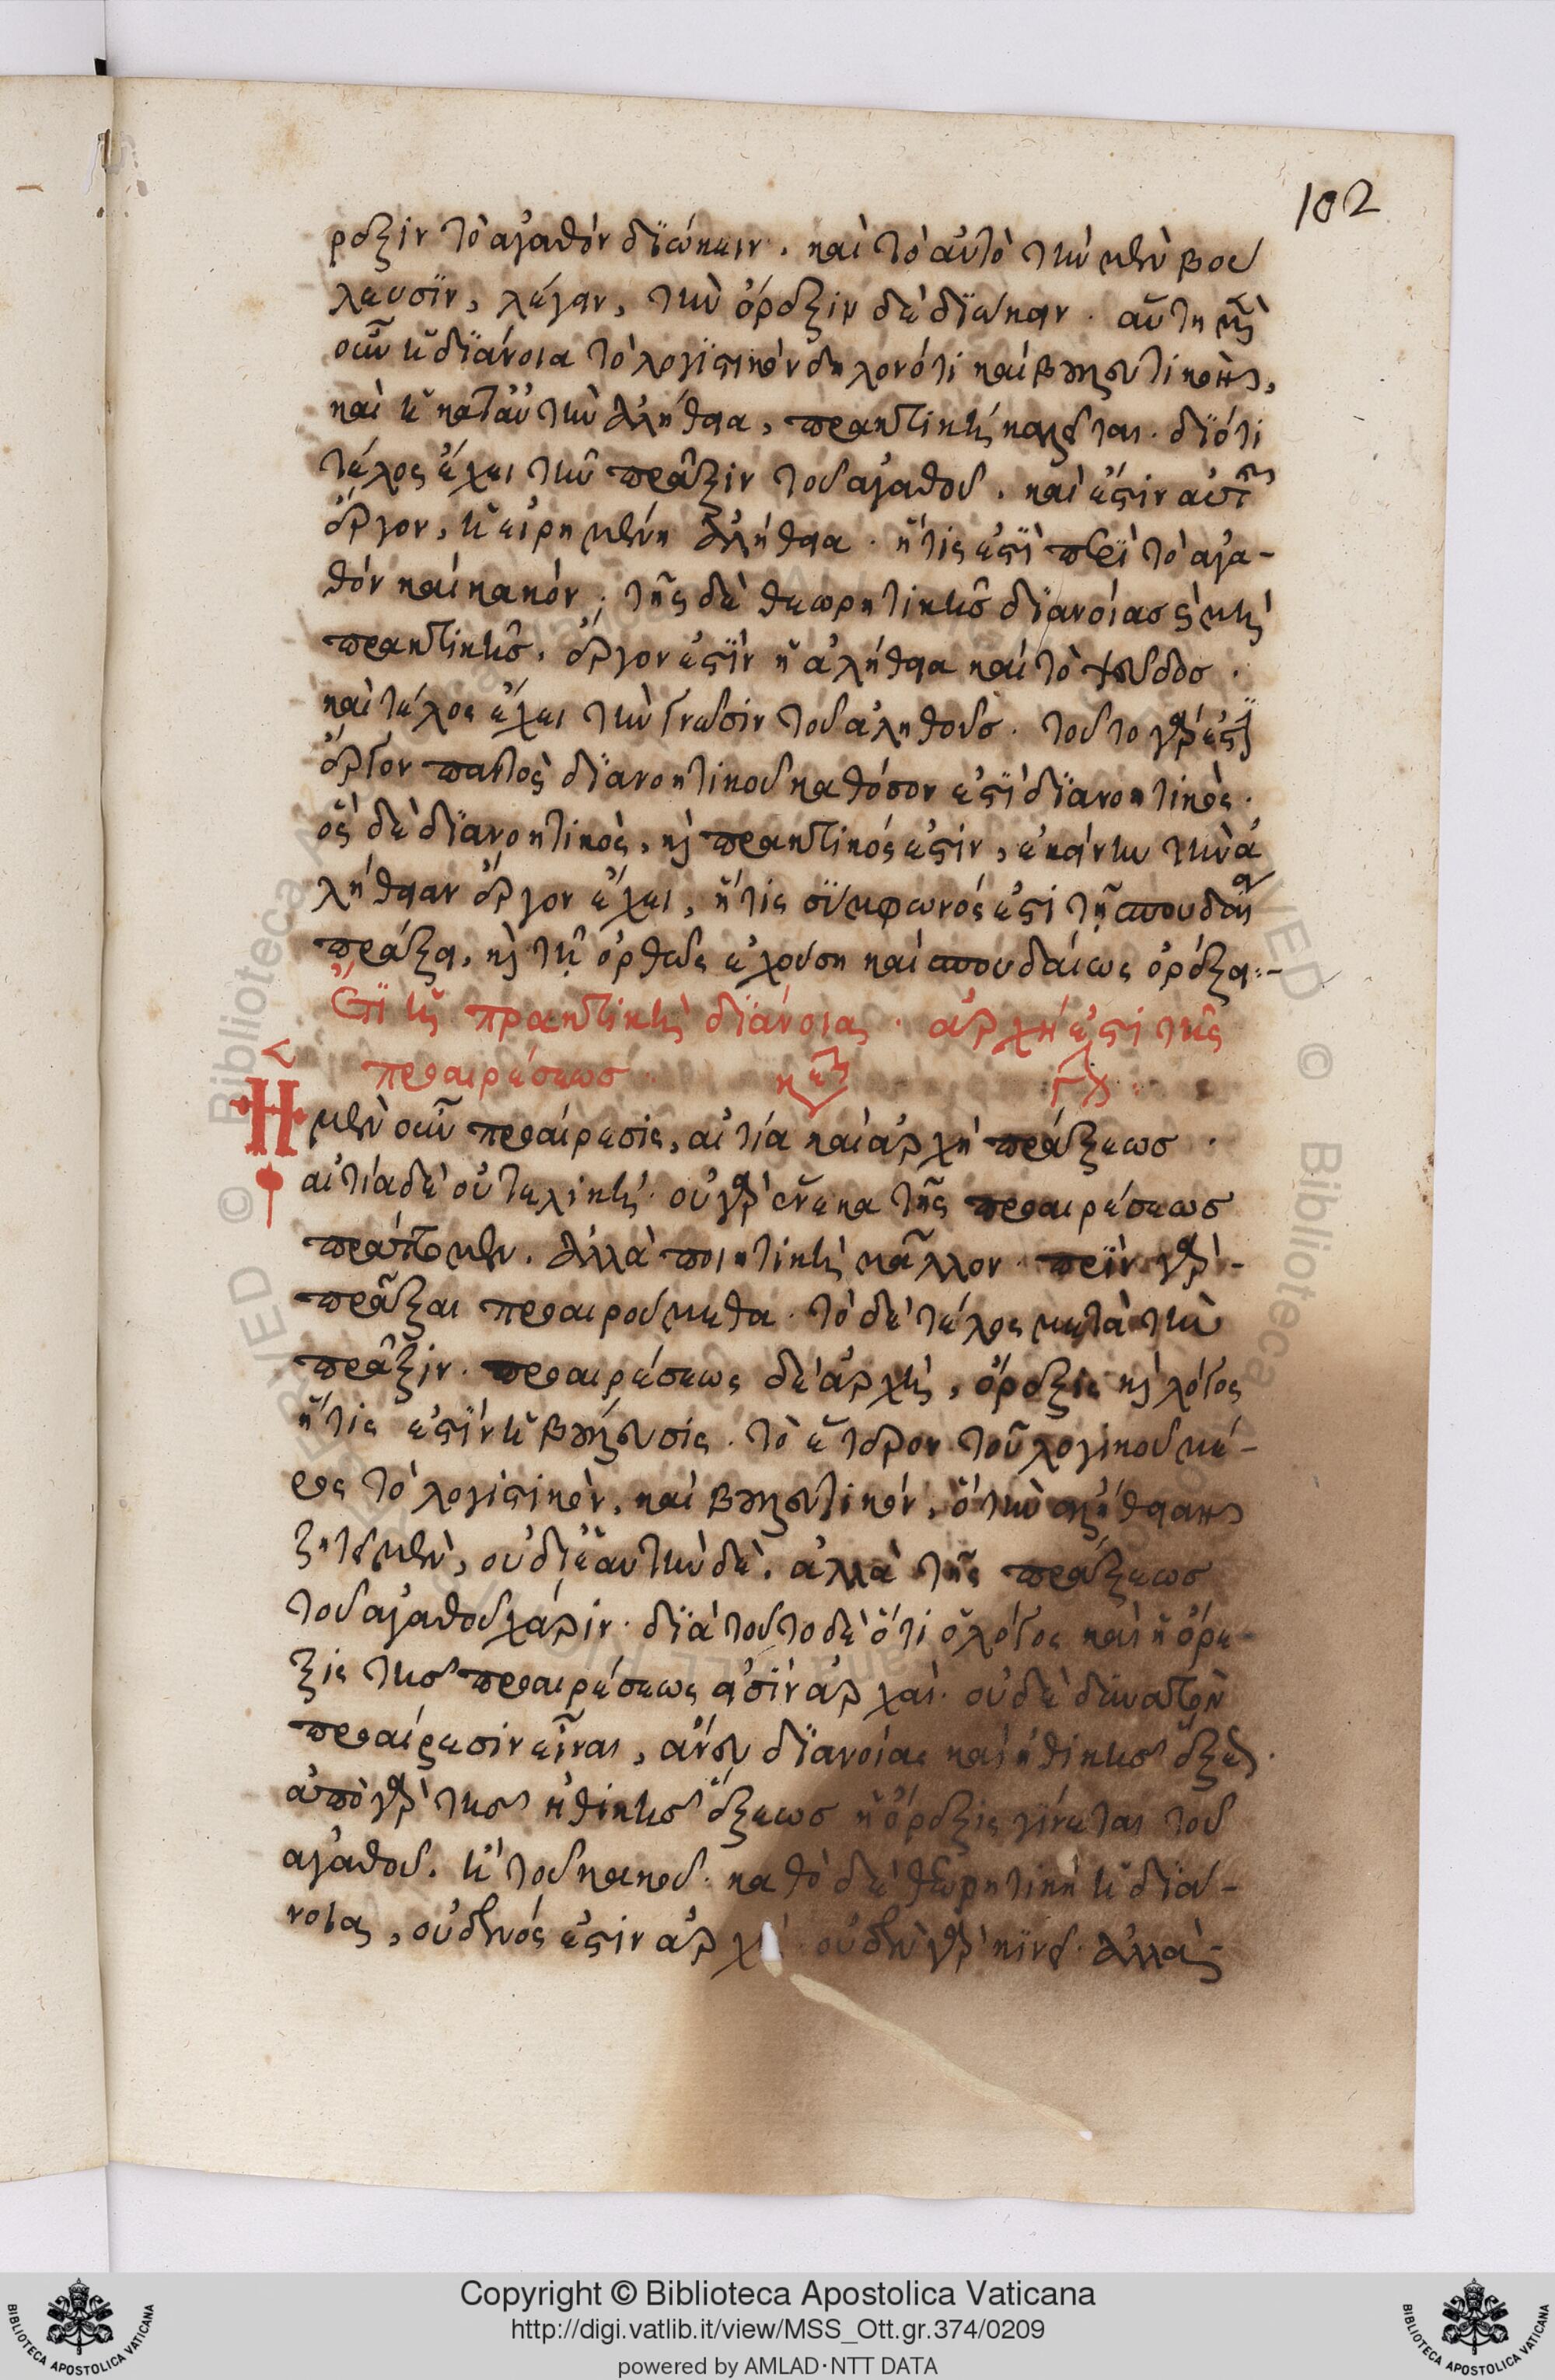 102
ρεξιν τὸ ἀγαθὸν διώκειν. καὶ τὸ αὐτὸ τὴν μὲν βού
λευσιν, λέγειν, τὴν ὄρεξιν δὲ διώκειν. αὕτη μὲν
οὖν ἡ διάνοια τὸ λογιστικὸν δηλονότι καὶ βουλευτικὸν,
καὶ ἡ κατ' αὐτὴν ἀλήθεια, πρακτικὴ καλεῖται. διότι
τέλος ἔχει τὴν πρᾶξιν τοῦ ἀγαθοῦ. καὶ ἔστιν αὐτῆς
ἔργον, ἡ εἰρημένη ἀλήθεια. ἥτις ἐστὶ περὶ τὸ ἀγα-
θὸν καὶ κακόν; τῆς δὲ θεωρητικῆς διανοίας καὶ μὴ
πρακτικῆς, ἔργον ἐστὶν ἡ ἀλήθεια καὶ τὸ ψεῦδος.
καὶ τέλος ἔχει τὴν γνῶσιν τοῦ ἀληθοῦς. τοῦτο γάρ ἐστι
ἔργον παντὸς διανοητικοῦ καθόσον ἐστὶ διανοητικός.
ὃς δὲ διανοητικὸς, καὶ πρακτικός ἐστιν, ἐκείνην τὴν ἀ
λήθειαν ἔργον ἔχει, ἥτις σύμφωνός ἐστι τῇ σπουδαίᾳ
πράξει, καὶ τῇ ὀρθῶς ἐχούσῃ καὶ σπουδαίως ὀρέξει:-
Ὅτι τῆς πρακτικῆς διανοίας. ἀρχή ἐστι τῆς
προαιρέσεως. κεφ γχ
Ἡ μὲν οὖν προαίρεσις, αἰτία καὶ ἀρχὴ πράξεως.
αἰτία δὲ οὐ τελική. οὐ γὰρ ἕνεκα τῆς προαιρέσεως
πράττομεν. ἀλλὰ ποιητικὴ μᾶλλον. πρὶν γὰρ-
πρᾶξαι προαιρούμεθα. τὸ δὲ τέλος μετὰ τὴν
πρᾶξιν. προαιρέσεως δὲ ἀρχὴ, ὄρεξις καὶ λόγος
ἥτις ἐστὶν ἡ βούλευσις. τὸ ἕτερον τοῦ λογικοῦ μέ-
ρος τὸ λογιστικὸν, καὶ βουλευτικόν, ὃ τὴν ἀλήθειαν
ζητεῖ μὲν, οὐ δι' ἑαυτὴν δὲ. ἀλλὰ τῆς πράξεως
τοῦ ἀγαθοῦ χάριν. διὰ τοῦτο δὲ ὅτι ὁ λόγος καὶ ἡ ὄρε-
ξις τῆς προαιρέσεως εἰσὶν ἀρχαί. οὐδὲ δυνατὸν
προαίρεσιν εἶναι, ἄνευ διανοίας καὶ ἠθικῆς ἕξεως.
ἀπὸ γὰρ τῆς ἠθικῆς ἕξεως ἡ ὄρεξις γίνεται τοῦ
ἀγαθοῦ. ἢ τοῦ κακοῦ. καθὸ δὲ θεωρητικὴ ἡ διά-
νοια, οὐδενός ἐστιν ἀρχή. οὐδὲν γὰρ κινεῖ. ἀλλὰ-
Copyright © Biblioteca Apostolica Vaticana
http://digi.vatlib.it/view/MSS_Ott.gr.374/0209
powered by AMLAD·NTT DATA
BIBLIOTECA APOSTOLICA VATICANA
BIBLIOTECA APOSTOLICA VATICANA